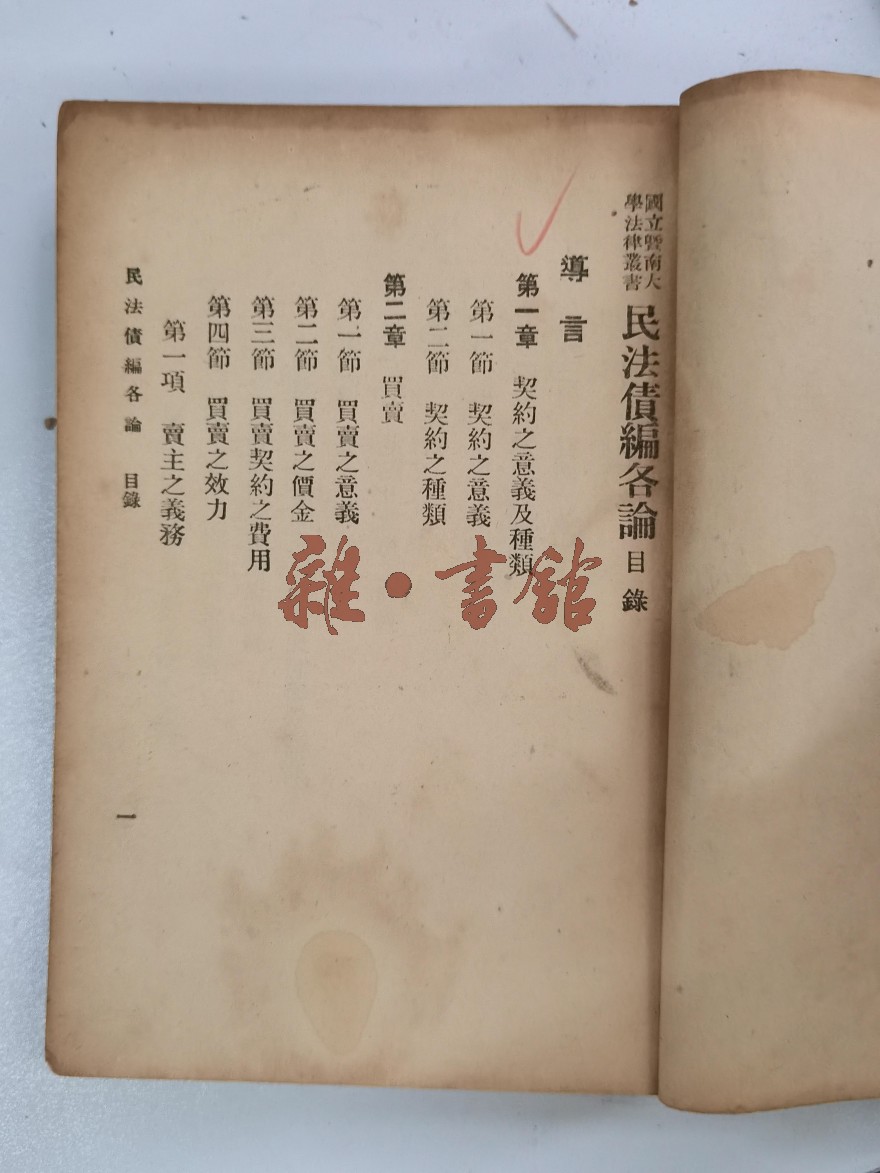 國立暨南大
學法律叢書
民法債編各論 目錄
導言
第一章 契約之意義及種類
第一節 契約之意義
第二節 契約之種類
第二章 買賣
第一節 買賣之意義
第二節 買賣之價金
第三節 買賣契約之費用
第四節 買賣之效力
第一項 賣主之義務
民法債編各論 目錄
一
雜·書館